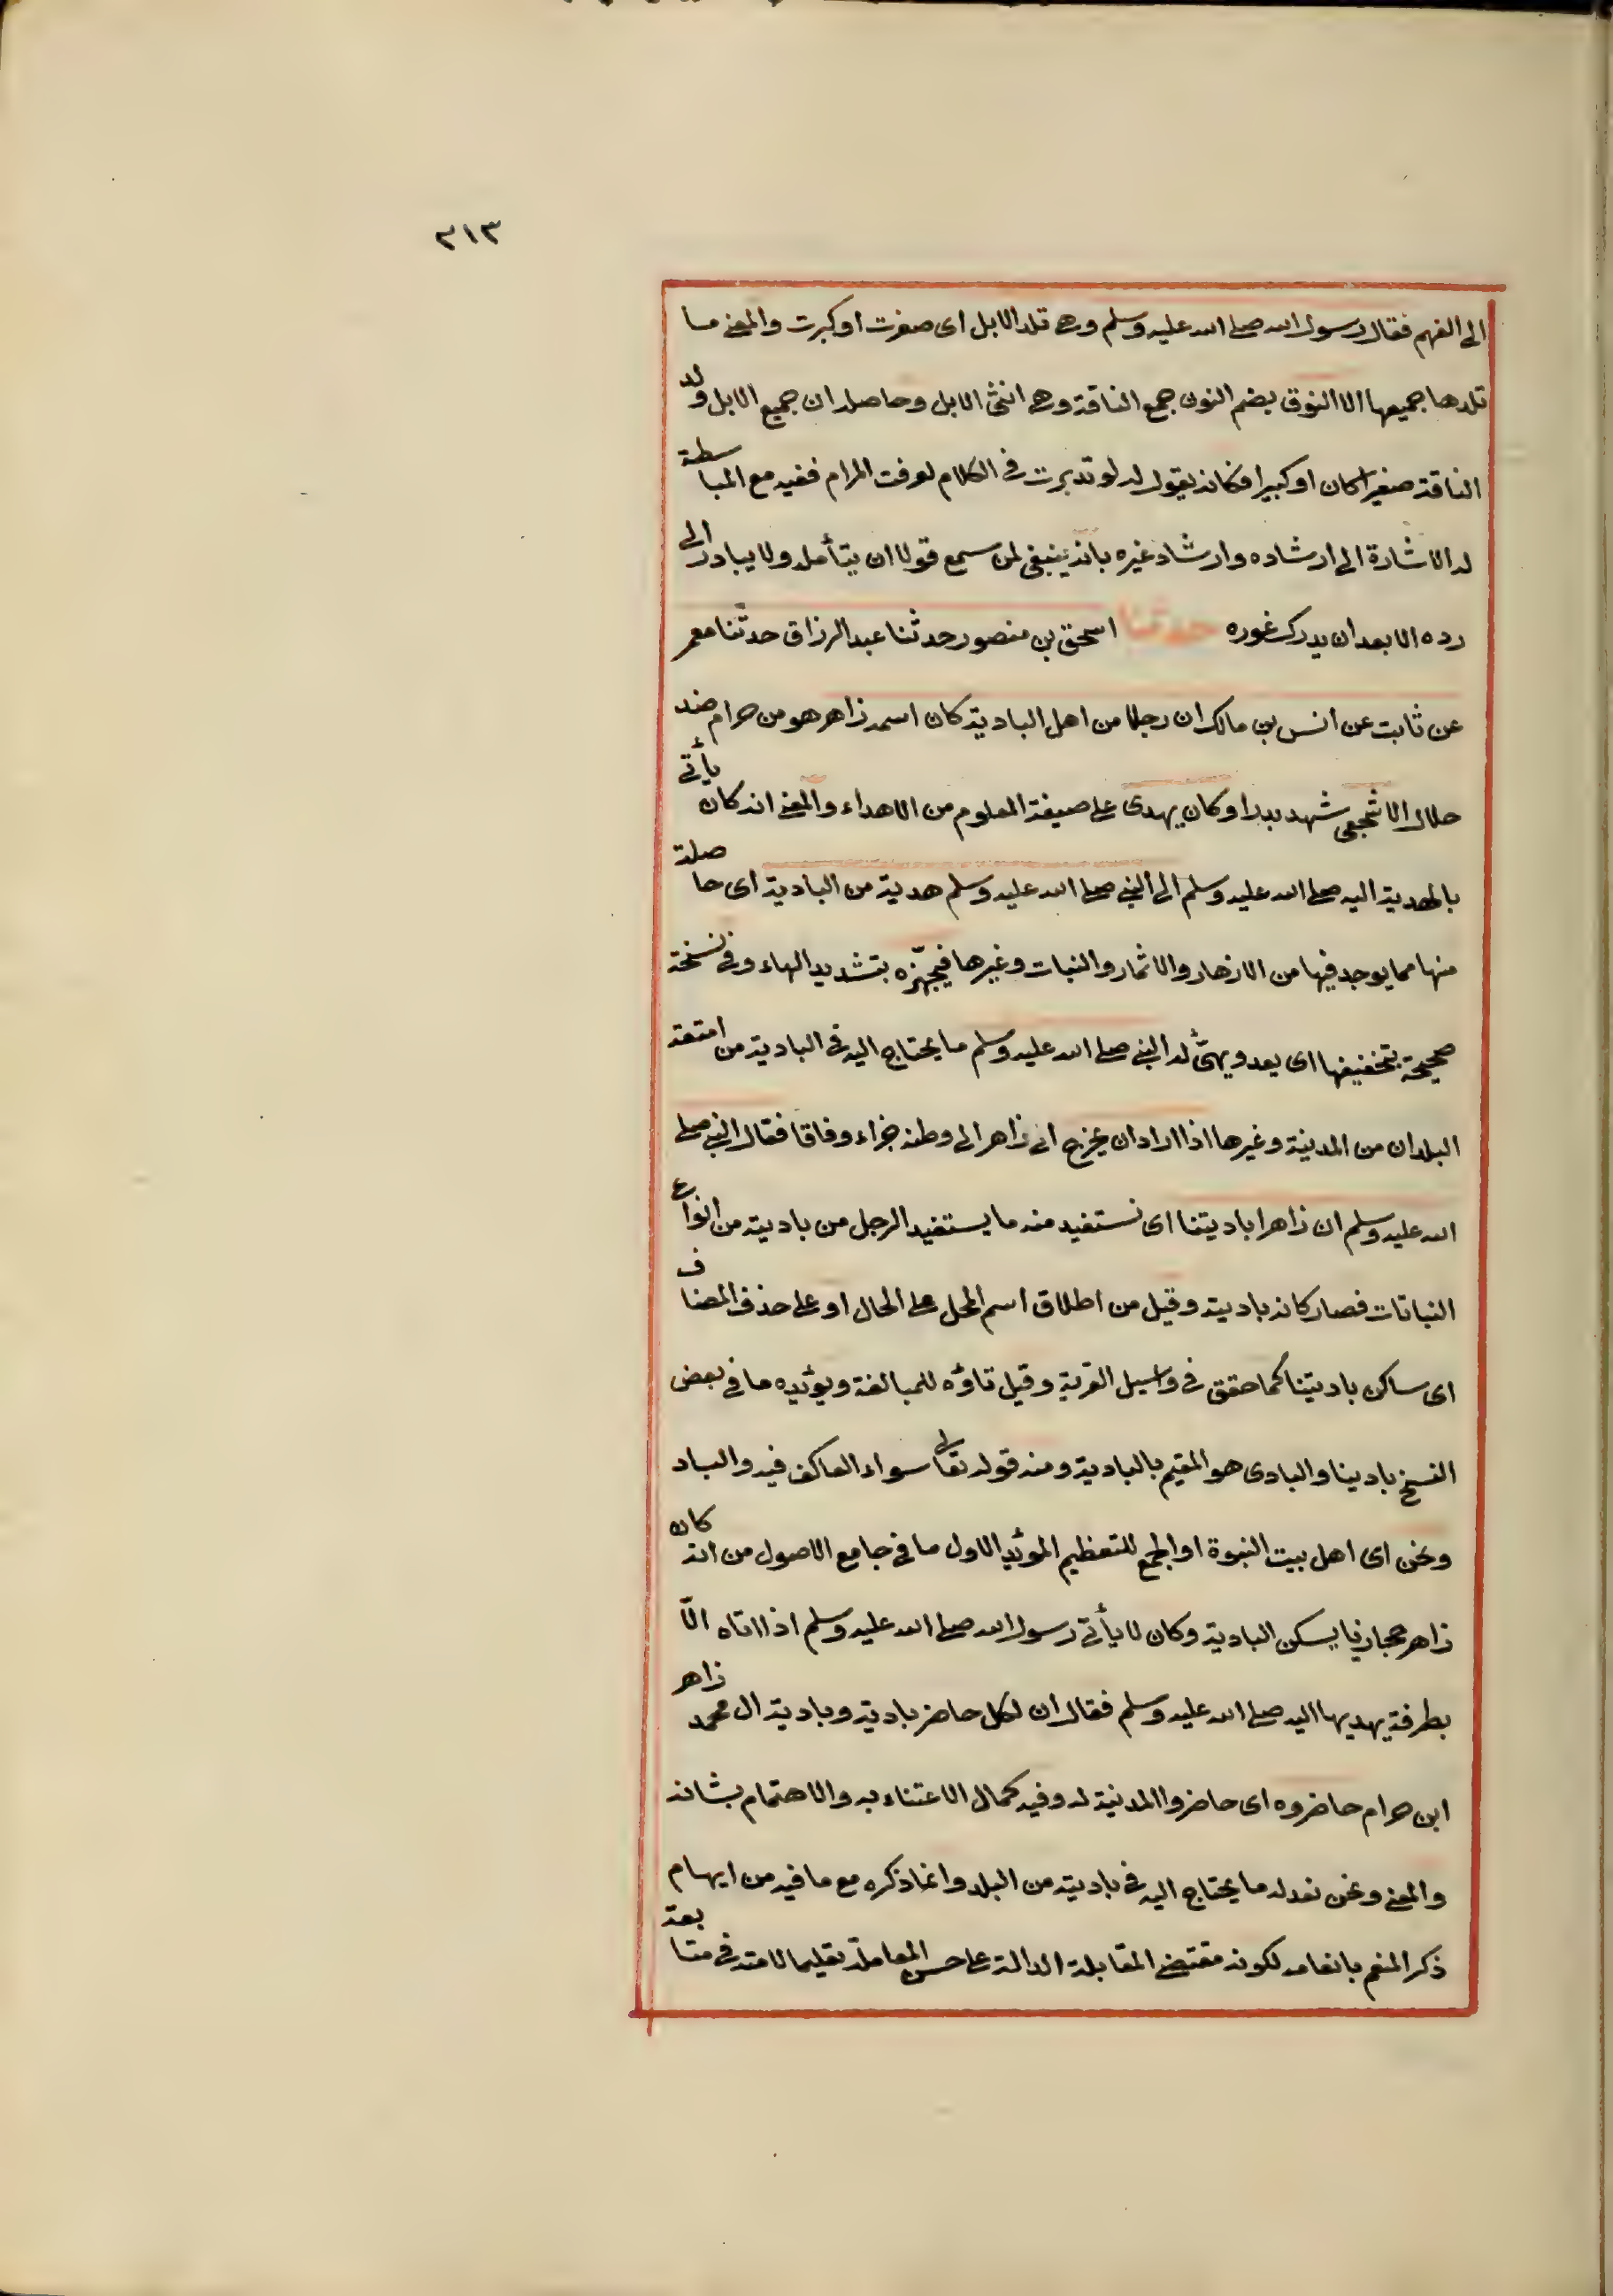 ٢١٣
الى الفهم فقال رسول الله صلى الله عليه وسلم وهي تلد الابل اى صغرت او كبرت والمعنى ما
تلدها جميعها الا النوق بضم النون جمع الناقة وهى انثى الابل وحاصله ان جميع الابل ولد
الناقة صغيرا كان او كبيرا فكانه يقول له لو تدبرت فى الكلام لعرفت المرام ففيه مع المباسطة
له الاشارة الى ارشاده وارشاد غيره بانه ينبغى لمن سمع قولا ان يتأمله ولا يبادر الى
رده الا بعد ان يدرك غوره حدثنا اسحق بن منصور حدثنا عبد الرزاق حدثنا معمر
عن ثابت عن انس بن مالك ان رجلا من اهل البادية كان اسمه زاهر هو من حرام ضد
حلال الاشجعى شهد بدرا وكان يهدى على صيغة المعلوم من الاهداء والمعنى انه كان يأتى
بالهدية اليه صلى الله عليه وسلم الى النبي صلى الله عليه وسلم هدية من البادية اى حاصلة
منها مما يوجد فيها من الازهار والاثمار والنبات وغيرها فيجهّزه بتشديد الهاء وفى نسخة
صحيحة بتخفيفها اى يعد ويهيّئ له النبي صلى الله عليه وسلم ما يحتاج اليه فى البادية من امتعة
البلدان من المدينة وغيرها اذا اراد ان يخرج اى زاهر الى وطنه جزاء وفاقا فقال النبي صلى
الله عليه وسلم ان زاهرا باديتنا اى نستفيد منه ما يستفيد الرجل من باديته من انواع
النباتات فصار كانه باديته وقيل من اطلاق اسم المحل على الحال او على حذف المضاف
اى ساكن باديتنا كما حقق فى واسيل القرية وقيل تاؤه للمبالغة ويؤيده ما فى بعض
النسخ بادينا والبادى هو المقيم بالبادية ومنه قوله تعالى سواء العاكف فيه والباد
ونحن اى اهل بيت النبوة او الجمع للتعظيم المؤيد الاول ما فى جامع الاصول من انه كان
زاهر حجازيا يسكن البادية وكان لا يأتى رسول الله صلى الله عليه وسلم اذا اتاه الّا
بطرفة يهديها اليه صلى الله عليه وسلم فقال ان لكل حاضر بادية وبادية ال محمد زاهر
ابن حرام حاضروه اى حاضروا المدينة له وفيه كمال الاعتناء به والاهتمام بشانه
والمعنى ونحن نعد له ما يحتاج اليه فى باديته من البلد وانما ذكره مع ما فيه من ايهام
ذكر المنعم بانعامه لكونه مقتضى المقابلة الدالة على حسن المعاملة تعليما لامته فى متابعة